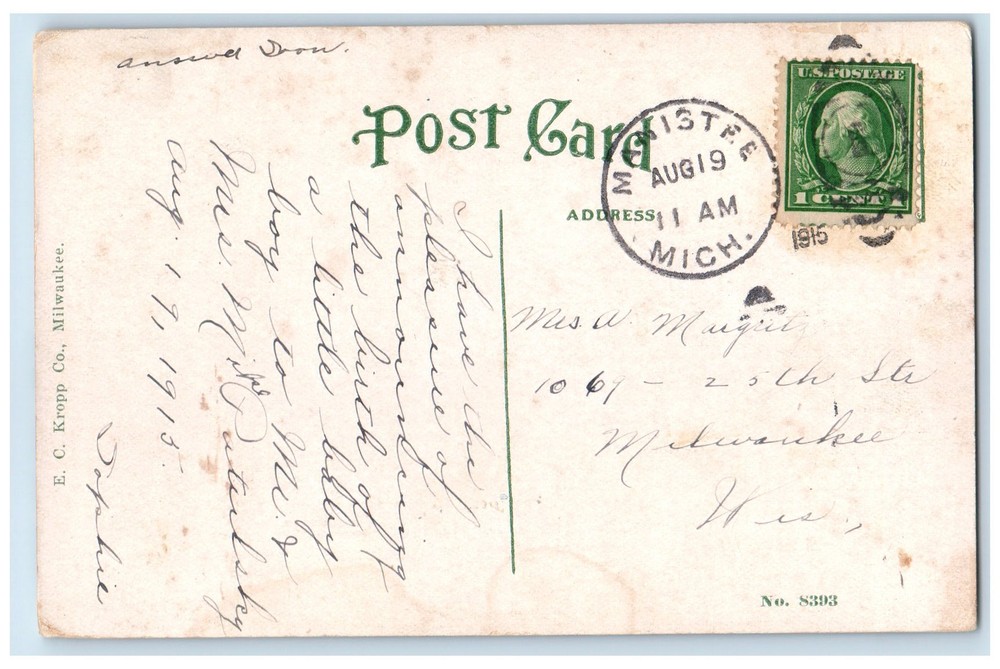 answer Soon.
POST CARD
MANISTEE
AUG 19
11 AM
MICH.
1915
U.S. POSTAGE
1 CENT 1
ADDRESS
I have the
pleasure of
announcing
the birth of
a little baby
boy to Mr. &
Mrs. Wm
Aug. 17, 1915.
Sophie
Mrs. W.
1069 - 25th Str
Milwaukee
Wis.,
E. C. Kropp Co., Milwaukee.
No. 8393